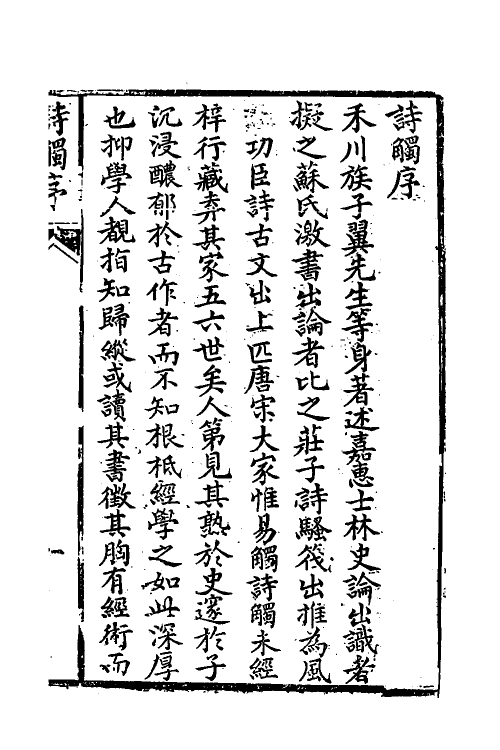 詩觸序
禾川族子翼先生等身著述嘉惠士林史論出識者
擬之蘇氏激書出論者比之莊子詩騷筏出推為風
功臣詩古文出上匹唐宋大家惟易觸詩觸未經
梓行藏弆其家五六世矣人第見其熟於史邃於子
沉浸醲郁於古作者而不知根柢經學之如此深厚
也抑學人覩指知歸縱或讀其書徵其胸有經術而
詩觸序
一